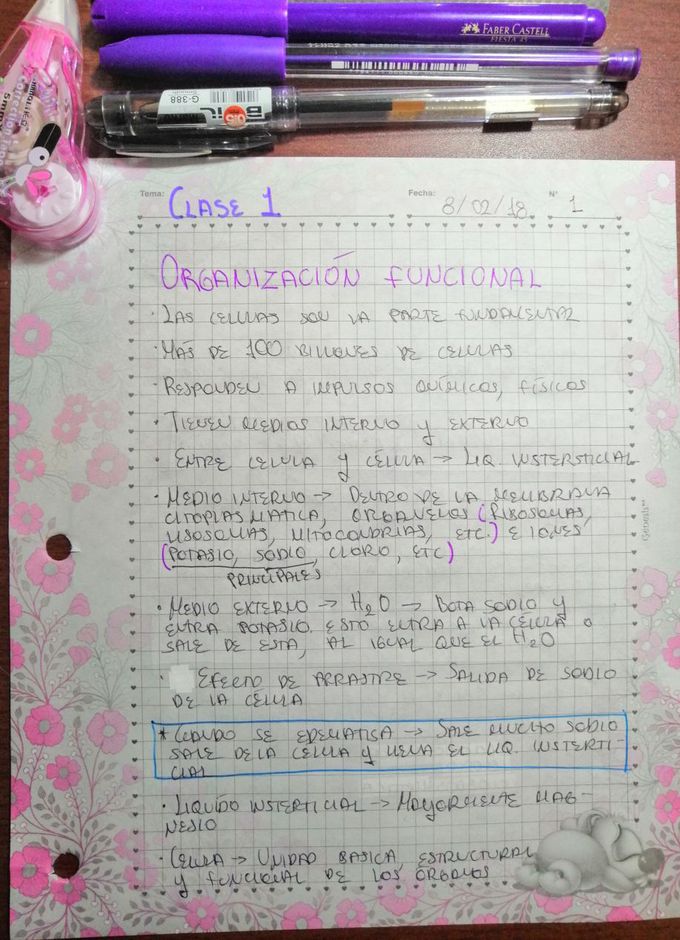 FABER CASTELL
FIESTA 45
G-388
Tema: CLASE 1 Fecha: 8/02/18 N° 1
ORGANIZACIÓN FUNCIONAL
· LAS CELULAS SON LA PARTE FUNDAMENTAL
· MÁS DE 100 BILLONES DE CELULAS
· RESPONDEN A IMPULSOS QUÍMICOS, FÍSICOS
· TIENEN MEDIOS INTERNO Y EXTERNO
· ENTRE CELULA Y CÉLULA → LIQ. INSTERSTICIAL
· MEDIO INTERNO → DENTRO DE LA MEMBRANA
CITOPLASMATICA, ORGANELOS (RIBOSOMAS,
LISOSOMAS, MITOCONDRIAS, ETC.) E IONES
(POTASIO, SODIO, CLORO, ETC)
PRINCIPALES
· MEDIO EXTERNO → H2O → BOTA SODIO Y
ENTRA POTASIO. ESTO ENTRA A LA CÉLULA O
SALE DE ESTA, AL IGUAL QUE EL H2O
· EFECTO DE ARRASTRE → SALIDA DE SODIO
DE LA CÉLULA
* CUANDO SE EDEMATISA → SALE MUCHO SODIO
SALE DE LA CELULA Y LLENA EL LIQ. INSTERTI-
CIAL
· LIQUIDO INSTERTICIAL → MAYORMENTE MAG-
NESIO
· CELULA → UNIDAD BASICA, ESTRUCTURAL
Y FUNCIONAL DE LOS ÓRGANOS